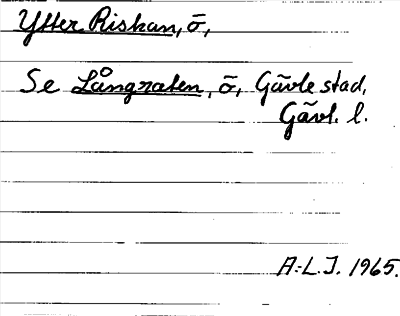 Ytter Riskan, ö,
Se Långraten, ö, Gävle stad,
Gävl. l.
A.-L.J. 1965.